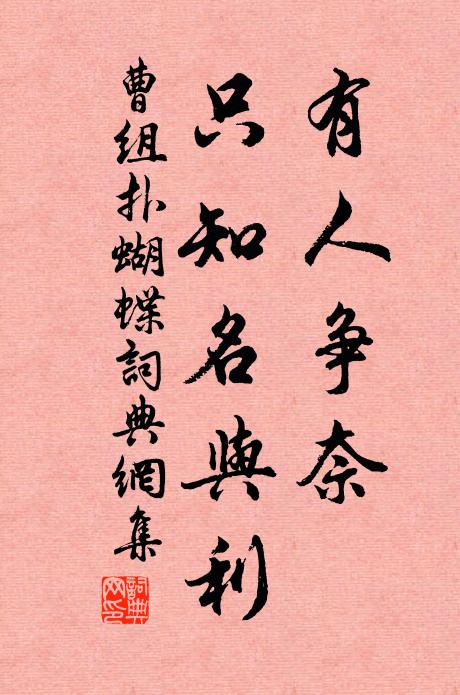 有人争奈
只知名與利
曹组扑蝴蝶詞典網集
詞典網印